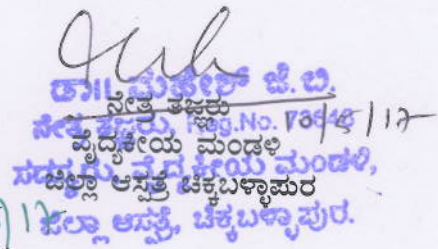 ಡಾ|| ಮಹೇಶ್ ಜಿ.ಬಿ.
ನೇತ್ರ ತಜ್ಞರು
ನೇತ್ರ ತಜ್ಞರು, Reg.No.
ವೈದ್ಯಕೀಯ ಮಂಡಳಿ
ಸದಸ್ಯರು, ವೈದ್ಯಕೀಯ ಮಂಡಳಿ,
ಜಿಲ್ಲಾ ಆಸ್ಪತ್ರೆ ಚಿಕ್ಕಬಳ್ಳಾಪುರ
ಜಿಲ್ಲಾ ಆಸ್ಪತ್ರೆ, ಚಿಕ್ಕಬಳ್ಳಾಪುರ.